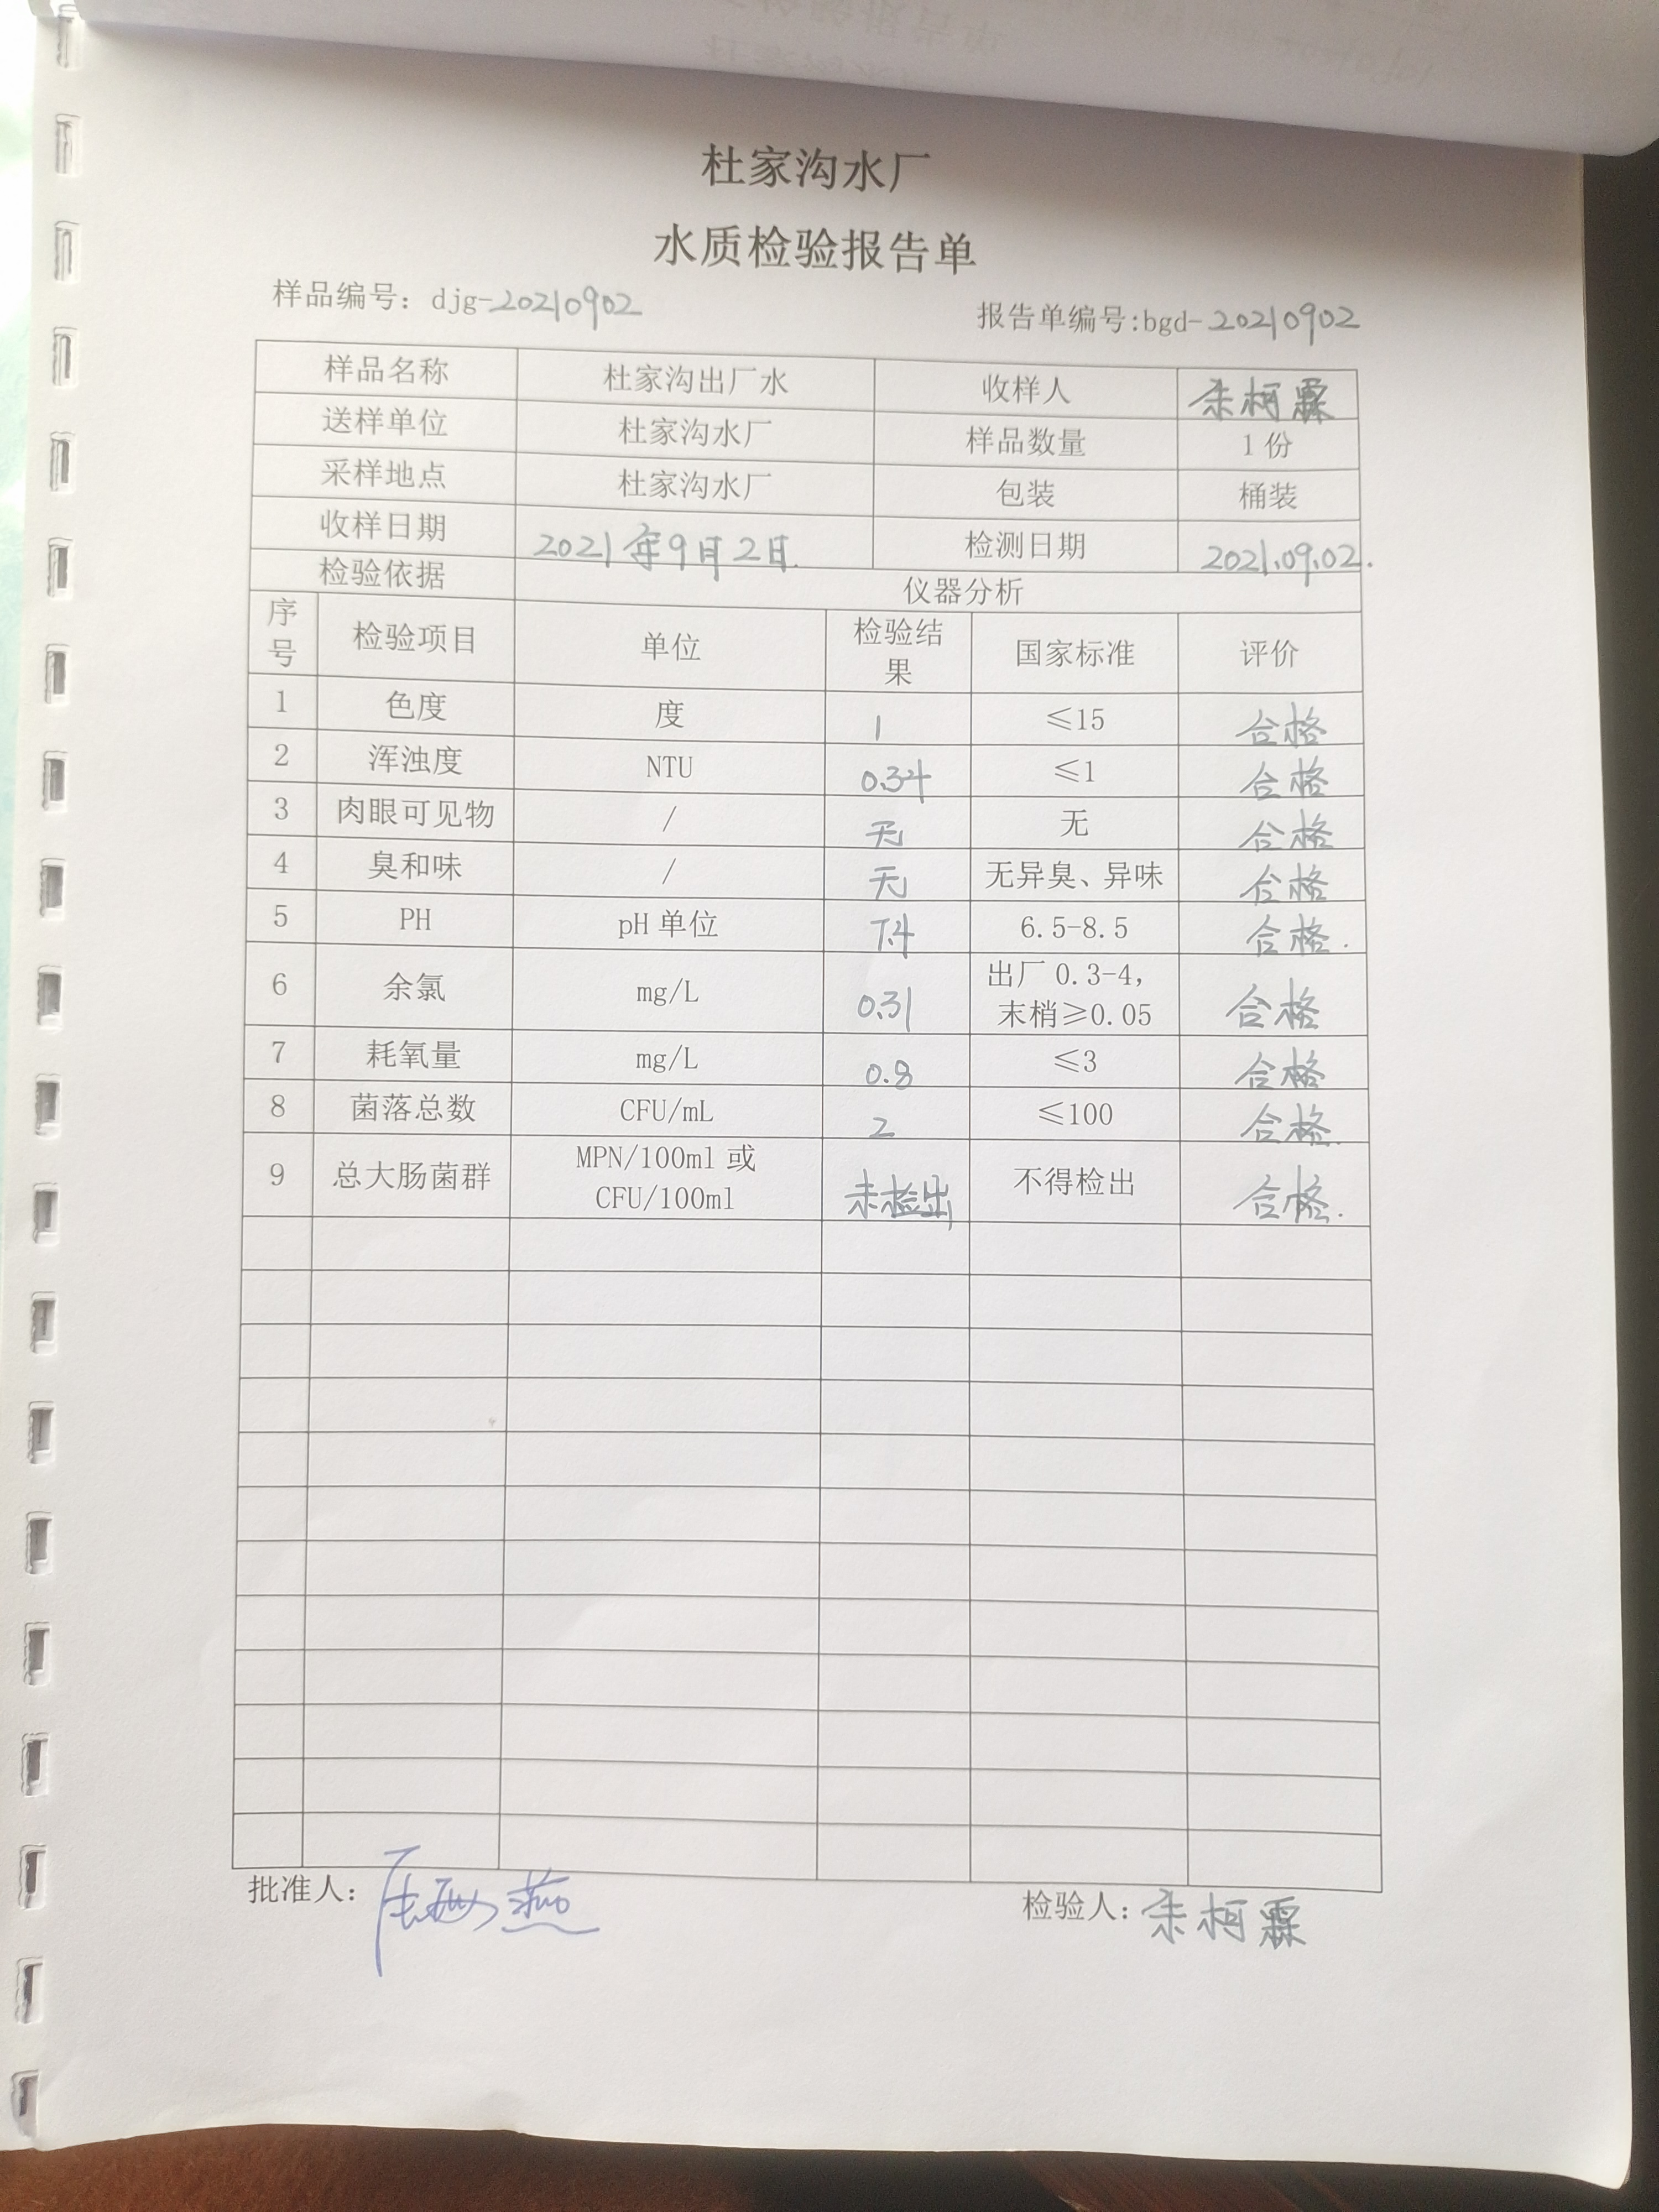 杜家沟水厂
水质检验报告单
样品编号：djg-20210902 报告单编号:bgd-20210902
样品名称 杜家沟出厂水 收样人 余柯霖
送样单位 杜家沟水厂 样品数量 1份
采样地点 杜家沟水厂 包装 桶装
收样日期 2021年9月2日. 检测日期 2021.09.02.
检验依据 仪器分析
序号 检验项目 单位 检验结果 国家标准 评价
1 色度 度 1 ≤15 合格
2 浑浊度 NTU 0.34 ≤1 合格
3 肉眼可见物 / 无 无 合格
4 臭和味 / 无 无异臭、异味 合格
5 PH pH单位 7.4 6.5-8.5 合格.
6 余氯 mg/L 0.31 出厂0.3-4,末梢≥0.05 合格
7 耗氧量 mg/L 0.8 ≤3 合格
8 菌落总数 CFU/mL 2 ≤100 合格.
9 总大肠菌群 MPN/100ml或CFU/100ml 未检出 不得检出 合格.
批准人： 检验人：余柯霖